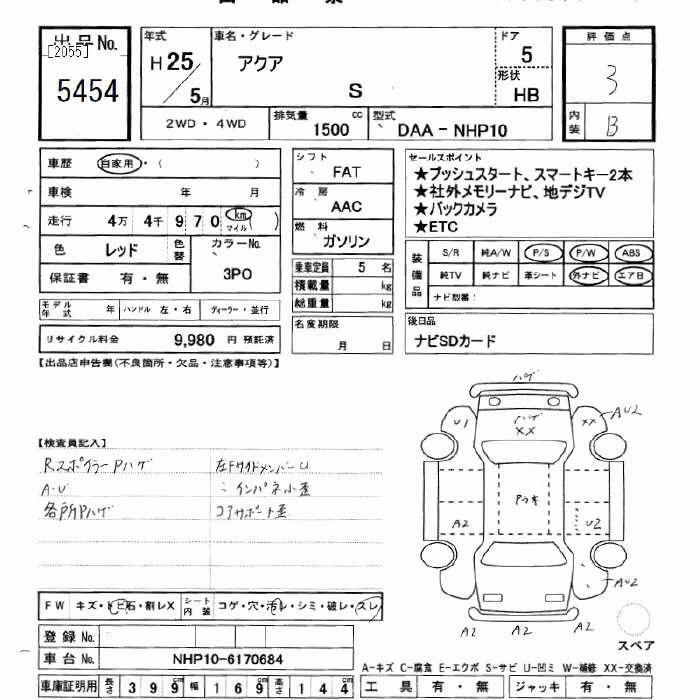 出品No.
[2055]
5454
年式
H 25
5月
車名・グレード
アクア
S
ドア
5
形状
HB
評価点
3
内装
B
2WD・4WD
排気量
1500 cc
型式
DAA-NHP10
車歴 自家用・( )
車検 年 月
走行 4万 4千 9 7 0 km マイル ( )
色 レッド 色替
カラーNo.
3PO
保証書 有・無
モデル年式 年 ハンドル 左・右 ディーラー・並行
リサイクル料金 9,980 円 預託済
シフト
FAT
冷房
AAC
燃料
ガソリン
乗車定員 5 名
積載量 kg
総重量 kg
名変期限
月 日
セールスポイント
★プッシュスタート、スマートキー2本
★社外メモリーナビ、地デジTV
★バックカメラ
★ETC
装備品
S/R 純A/W P/S P/W ABS
純TV 純ナビ 革シート 外ナビ エアB
ナビ型番:
後日品
ナビSDカード
【出品店申告欄(不良箇所・欠品・注意事項等)】
【検査員記入】
RスポイラーPハゲ
A・U
各所Pハゲ
左FサイドメンバーU
〃 インパネ小歪
コアサポート歪
ハゲ
ハゲ
XX
U1
XX
AU2
Pヌキ
A2
U2
AU2
A2 A2 A2
スペア
FW キズ・トビ石・割レX シート内装 コゲ・穴・汚レ・シミ・破レ・スレ
登録No.
車台No. NHP10-6170684
車庫証明用 長さ 3 9 9 cm 幅 1 6 9 cm 高さ 1 4 4 cm
A-キズ C-腐食 E-エクボ S-サビ U-凹ミ W-補修 XX-交換済
工具 有・無 ジャッキ 有・無